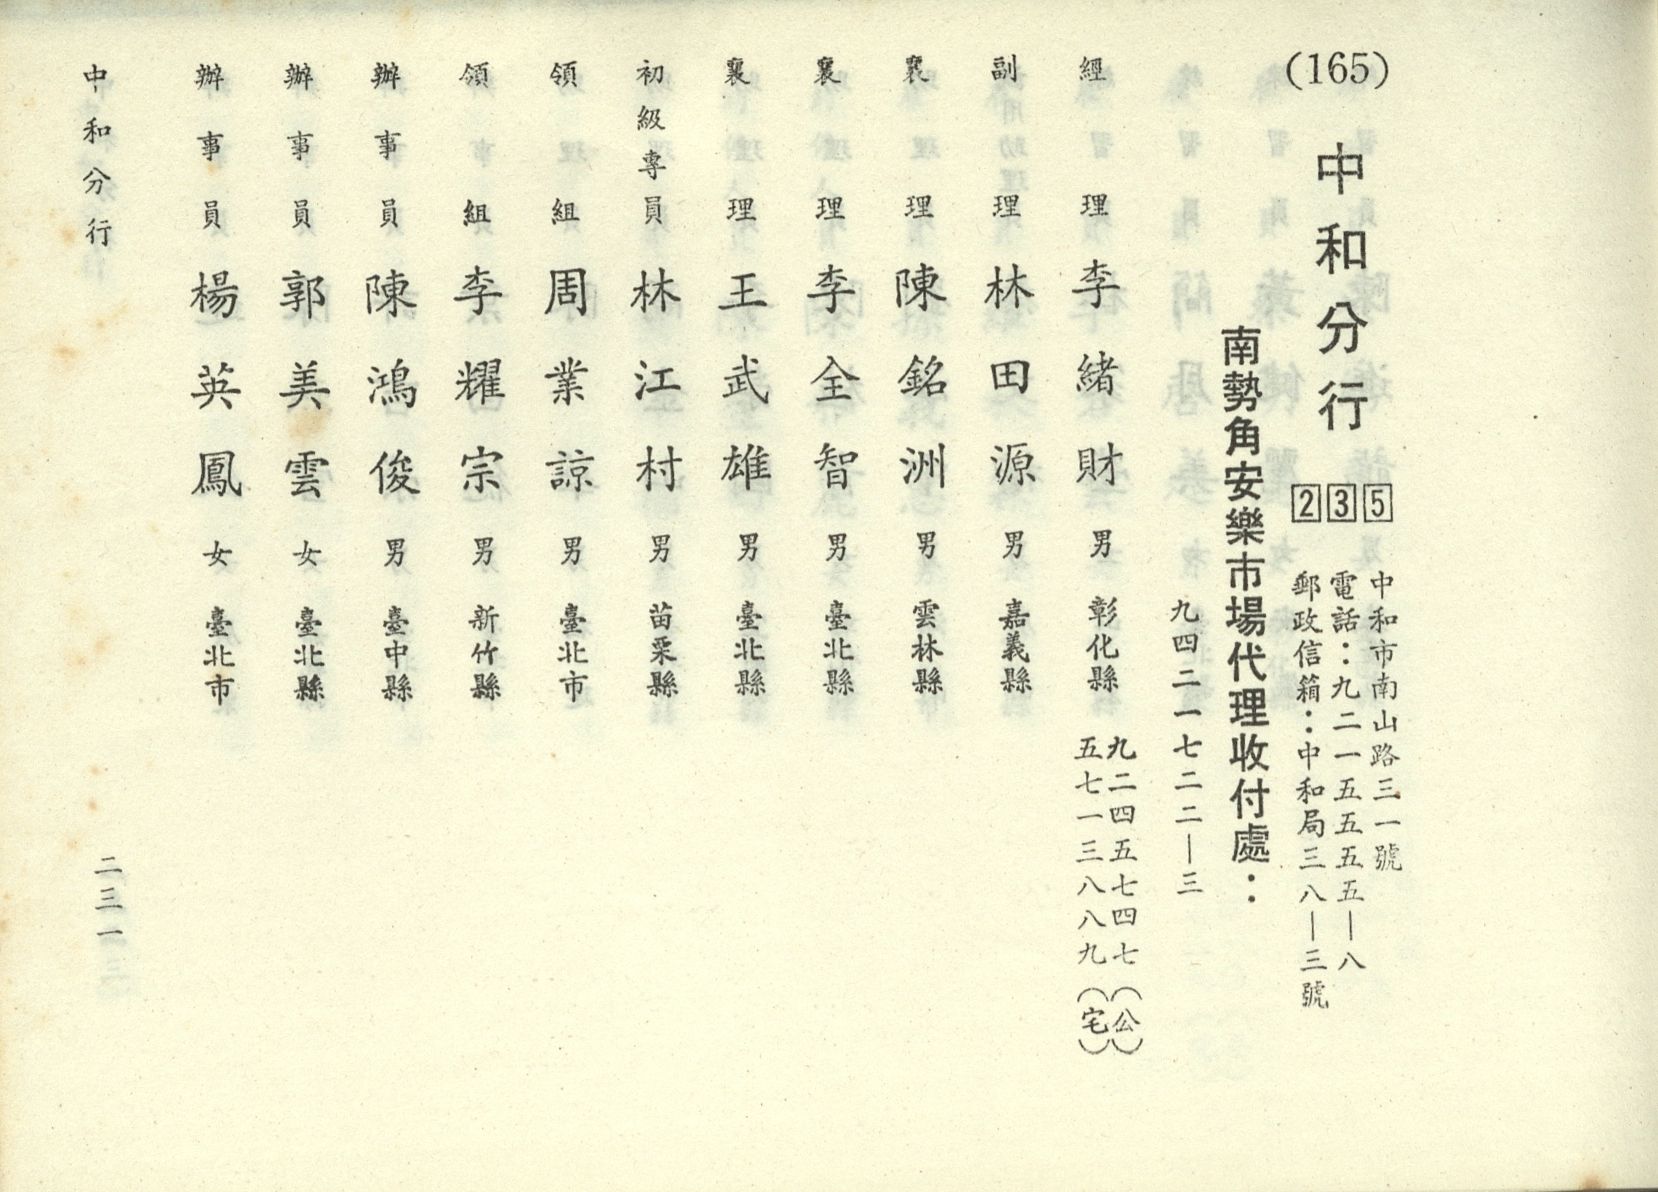 (165)
中和分行
235
中和市南山路三一號
電話：九二一五五五五｜八
郵政信箱：中和局三八｜三號
南勢角安樂市場代理收付處：
九四二一七二二｜三
經理 李緒財 男 彰化縣 九二四五七四七（公）
五七一三八八九（宅）
副理 林田源 男 嘉義縣
襄理 陳銘洲 男 雲林縣
襄理 李全智 男 臺北縣
襄理 王武雄 男 臺北縣
初級專員 林江村 男 苗栗縣
領組 周業諒 男 臺北市
領組 李耀宗 男 新竹縣
辦事員 陳鴻俊 男 臺中縣
辦事員 郭美雲 女 臺北縣
辦事員 楊英鳳 女 臺北市
中和分行
二三一